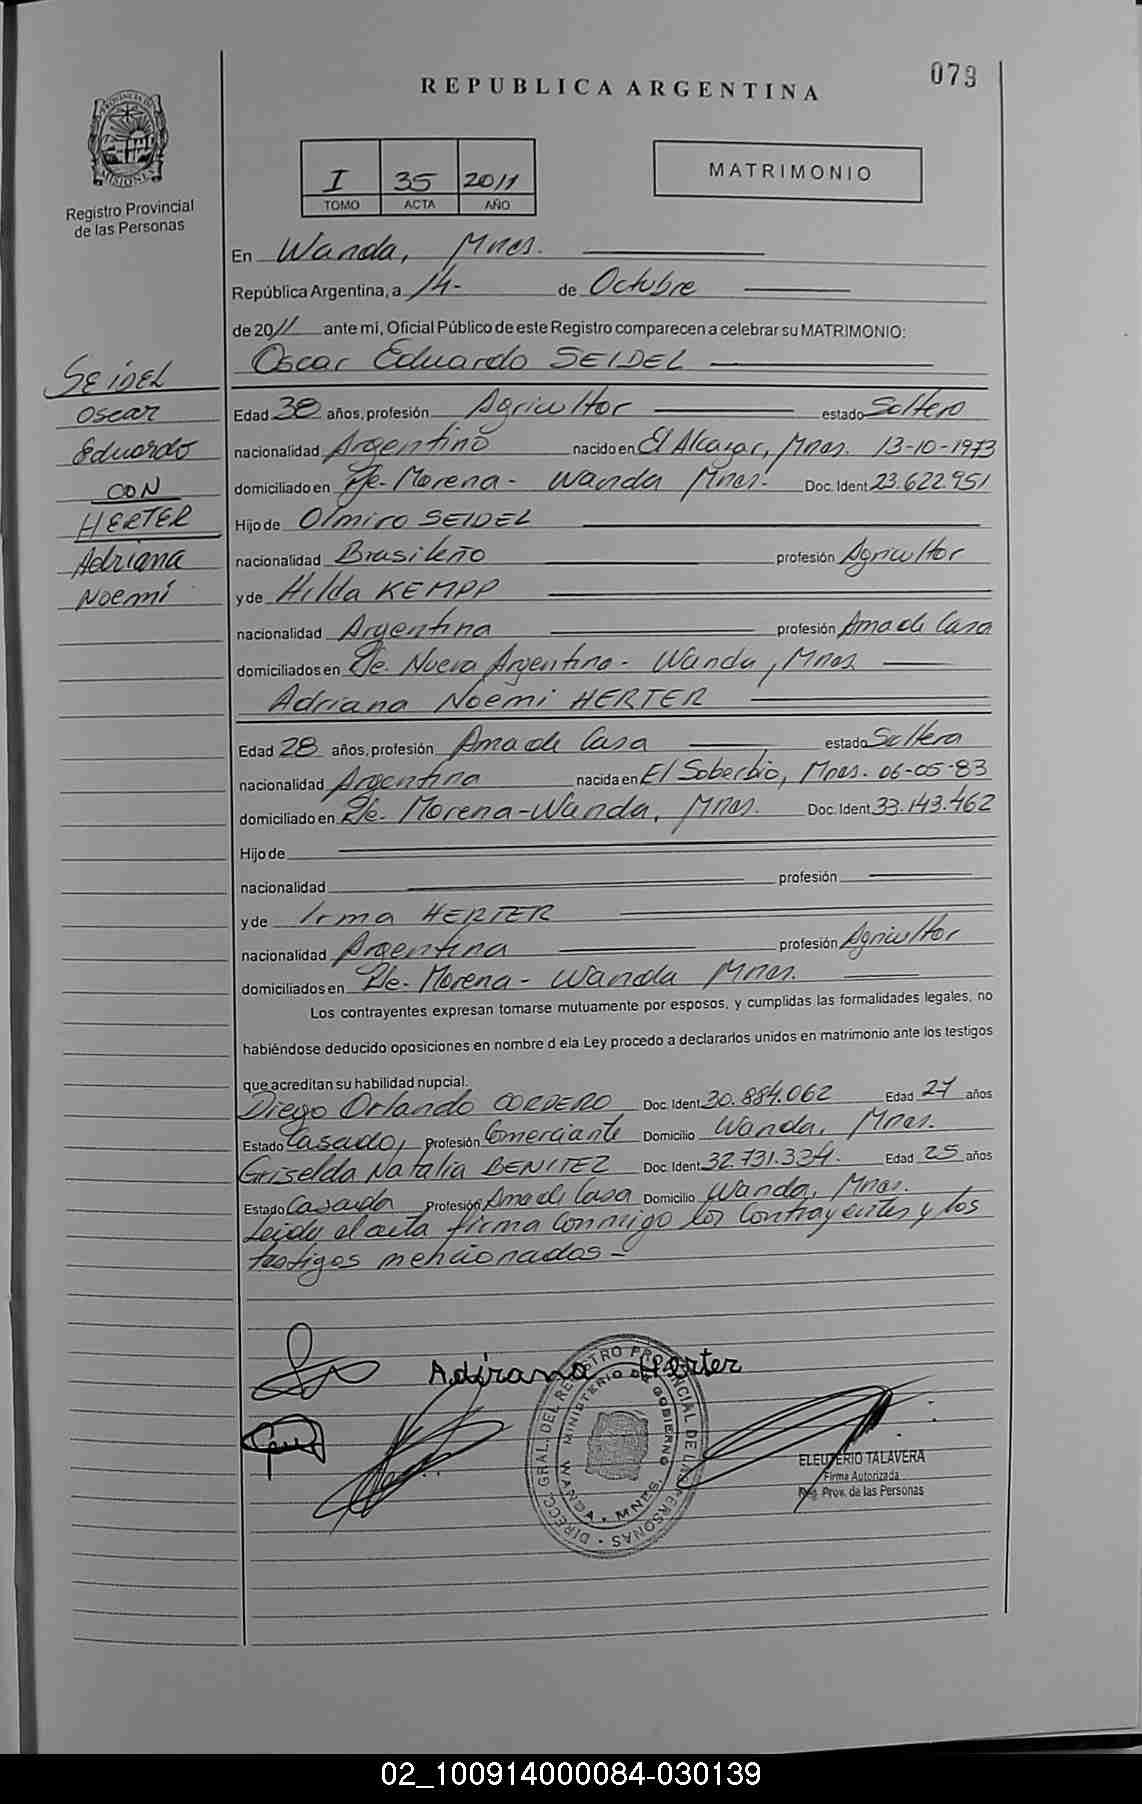 079
REPUBLICA ARGENTINA
PROVINCIA DE MISIONES
Registro Provincial
de las Personas
I 35 2011
TOMO ACTA AÑO
MATRIMONIO
En Wanda, Mnes.
República Argentina, a 14- de Octubre
de 2011 ante mí, Oficial Público de este Registro comparecen a celebrar su MATRIMONIO:
Oscar Eduardo SEIDEL
SEIDEL
Oscar
Eduardo
CON
HERTER
Adriana
Noemi
Edad 38 años, profesión Agricultor estado Soltero
nacionalidad Argentino nacido en El Alcazar, Mnes. 13-10-1973
domiciliado en Pje. Morena - Wanda Mnes. Doc. Ident 23.622.951
Hijo de Olmiro SEIDEL
nacionalidad Brasileño profesión Agricultor
y de Hilda KEMPP
nacionalidad Argentina profesión Ama de Casa
domiciliados en Pje. Nueva Argentina - Wanda, Mnes
Adriana Noemi HERTER
Edad 28 años, profesión Ama de Casa estado Soltera
nacionalidad Argentina nacida en El Soberbio, Mnes. 06-05-83
domiciliado en Pje. Morena - Wanda, Mnes. Doc. Ident 33.143.462
Hijo de
nacionalidad profesión
y de Irma HERTER
nacionalidad Argentina profesión Agricultor
domiciliados en Pje. Morena - Wanda Mnes.
Los contrayentes expresan tomarse mutuamente por esposos, y cumplidas las formalidades legales, no
habiéndose deducido oposiciones en nombre d ela Ley procedo a declararlos unidos en matrimonio ante los testigos
que acreditan su habilidad nupcial.
Diego Orlando CORDERO Doc. Ident 30.884.062 Edad 27 años
Estado Casado, Profesión Comerciante Domicilio Wanda, Mnes.
Griselda Natalia BENITEZ Doc. Ident 32.731.334. Edad 25 años
Estado Casada Profesión Ama de Casa Domicilio Wanda, Mnes.
Leida el acta firma conmigo los contrayentes y los
testigos mencionados -
Adirana Herter
DIRECC. GRAL. DEL REGISTRO PROVINCIAL DE LAS PERSONAS
MINISTERIO DE GOBIERNO
WANDA MNES
ELEUTERIO TALAVERA
Firma Autorizada
Reg. Prov. de las Personas
02_100914000084-030139